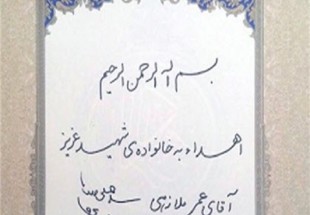 بسم الله الرحمن الرحیم
اهداء به خانواده‌ی شهید عزیز
آقای عمر ملازهی